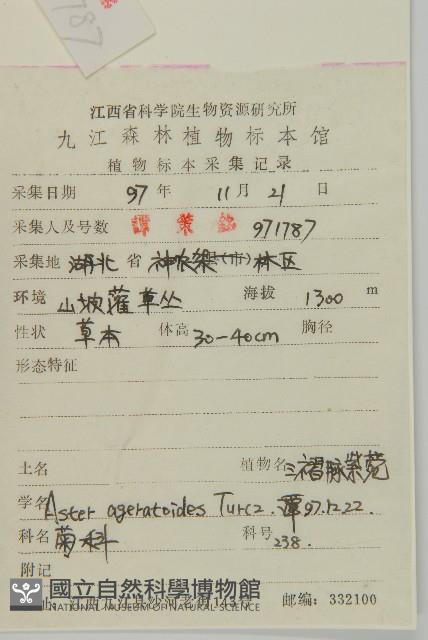 787
江西省科学院生物资源研究所
九江森林植物标本馆
植物标本采集记录
采集日期 97 年 11 月 21 日
采集人及号数 譚策銘 971787
采集地 湖北 省 神农架(市)林区
环境 山坡灌草丛 海拔 1300 m
性状 草本 体高 30-40cm 胸径
形态特征
土名 植物名 三褶脉紫菀
学名 Aster ageratoides Turcz. 谭97.12.22.
科名 菊科 科号 238.
附记
國立自然科學博物館
NATIONAL MUSEUM OF NATURAL SCIENCE
江西九江县沙河 113号 邮编: 332100